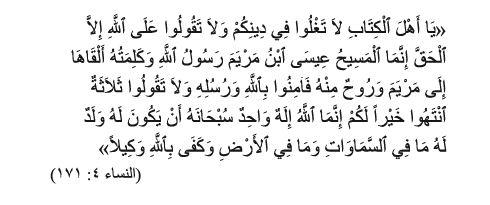 «يَا أَهْلَ ٱلْكِتَابِ لاَ تَغْلُوا فِي دِينِكُمْ وَلاَ تَقُولُوا عَلَى ٱللَّهِ إِلاَّ
ٱلْحَقَّ إِنَّمَا ٱلْمَسِيحُ عِيسَى ٱبْنُ مَرْيَمَ رَسُولُ ٱللَّهِ وَكَلِمَتُهُ أَلْقَاهَا
إِلَى مَرْيَمَ وَرُوحٌ مِنْهُ فَآمِنُوا بِٱللَّهِ وَرُسُلِهِ وَلاَ تَقُولُوا ثَلاَثَةٌ
ٱنْتَهُوا خَيْراً لَكُمْ إِنَّمَا ٱللَّهُ إِلَهٌ وَاحِدٌ سُبْحَانَهُ أَنْ يَكُونَ لَهُ وَلَدٌ
لَهُ مَا فِي ٱلسَّمَاوَاتِ وَمَا فِي ٱلأَرْضِ وَكَفَى بِٱللَّهِ وَكِيلاً»
(النساء ٤: ١٧١)